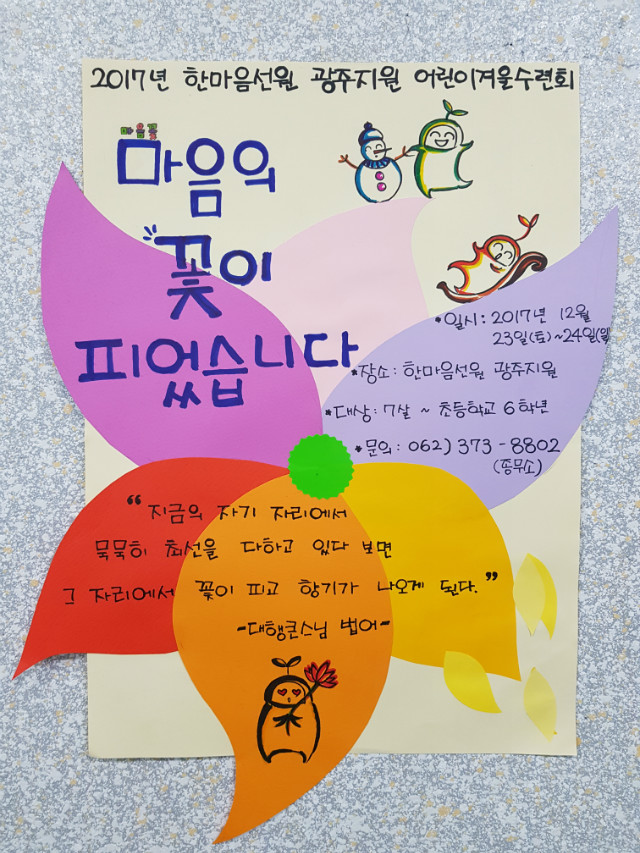 2017년 한마음선원 광주지원 어린이겨울수련회
마음꽃
마음의
꽃이
피었습니다
*일시: 2017년 12월
23일(토)~24일(일)
*장소: 한마음선원 광주지원
*대상: 7살 ~ 초등학교 6학년
*문의: 062) 373-8802
(종무소)
"지금의 자기 자리에서
묵묵히 최선을 다하고 있다 보면
그 자리에서 꽃이 피고 향기가 나오게 된다."
-대행큰스님 법어-